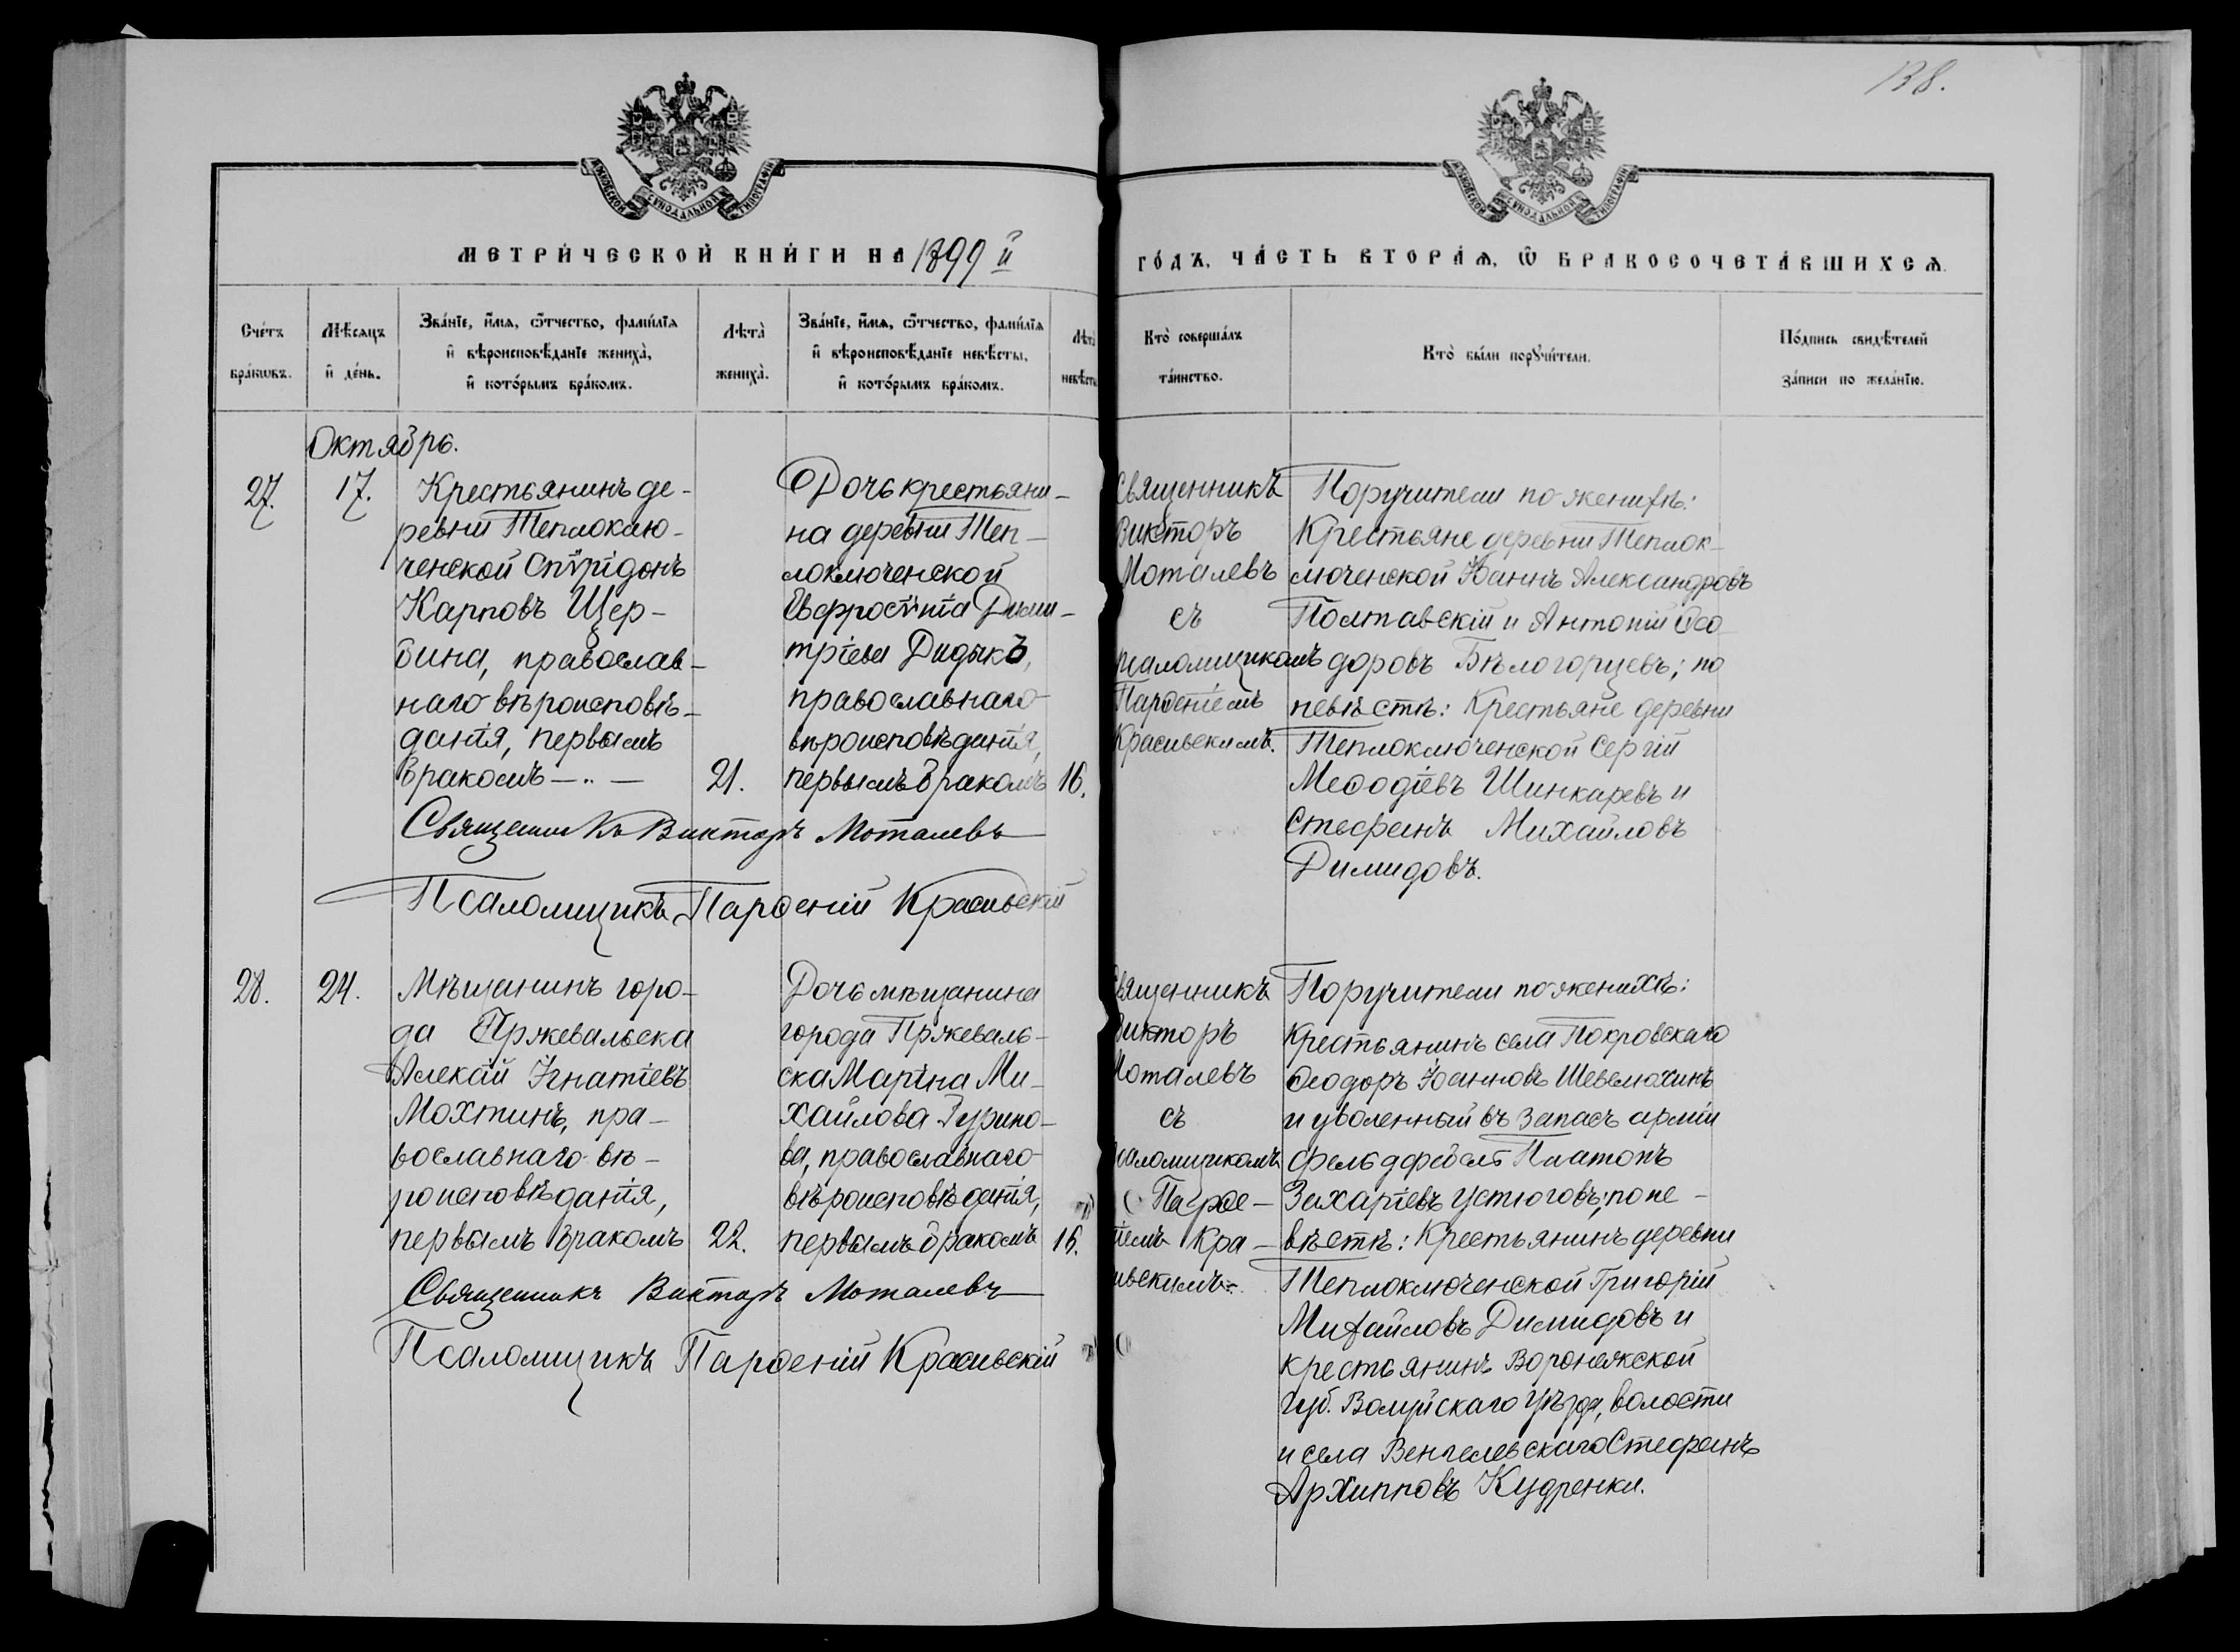 138.
МЕТРИ́ЧЕСКОЙ КНИ́ГИ НА 1899 й
ГО́ДЪ, ЧА́СТЬ ВТОРА́Ѧ, Ѿ БРАКОСОЧЕТА́ВШИХСѦ.
Сче́тъ бра́кѡвъ.
Мѣ́сяцъ и де́нь.
Зва́нїе, и́мѧ, ѻ́тчество, фамі́лїѧ
и҆ вѣроисповѣ́данїе жениха̀,
и҆ кото́рымъ бра́комъ.
Лѣта̀ жениха̀.
Зва́нїе, и́мѧ, ѻ́тчество, фамі́лїѧ
и҆ вѣроисповѣ́данїе невѣ́сты,
и҆ кото́рымъ бра́комъ.
Лѣта̀ невѣсты
Кто̀ соверша́лъ
та́инство.
Кто̀ бы́ли порꙋчи́тели.
По́дпись свидѣ́телей
за́писи по жела́нїю.
Октябрь.
27.
17.
Крестьянинъ де-
ревни Теплоклю-
ченской Спѵрідонъ
Карповъ Щер-
бина, православ-
наго вѣроисповѣ-
данія, первымъ
бракомъ —..—
21.
Дочь крестьяни-
на деревни Теп-
лоключенской
Евфросинія Дими-
тріева Дидыкъ,
православнаго
вѣроисповѣданія,
первымъ бракомъ
16.
Священникъ Викторъ Моталевъ
Псаломщикъ Парѳеній Красивскій
Священникъ
Викторъ
Моталевъ
съ
псаломщикомъ
Парѳеніемъ
Красивскимъ.
Поручители по женихѣ:
Крестьяне деревни Теплок-
люченской Іоаннъ Александровъ
Полтавскій и Антоній Ѳео-
доровъ Бѣлогорцевъ; по
невѣстѣ: Крестьяне деревни
Теплоключенской Сергій
Меѳодіевъ Шинкаревъ и
Стефанъ Михайловъ
Димидовъ.
28.
24.
Мѣщанинъ горо-
да Пржевальска
Алексій Игнатіевъ
Мохтинъ, пра-
вославнаго вѣ-
роисповѣданія,
первымъ бракомъ
22.
Дочь мѣщанина
города Пржеваль-
ска Марина Ми-
хайлова Гурино-
ва, православнаго
вѣроисповѣданія,
первымъ бракомъ
16.
Священникъ Викторъ Моталевъ
Псаломщикъ Парѳеній Красивскій
Священникъ
Викторъ
Моталевъ
съ
псаломщикомъ
Парѳе-
ніемъ Кра-
сивскимъ.
Поручители по женихѣ:
Крестьянинъ села Покровскаго
Ѳеодоръ Іоанновъ Шевелюхинъ
и уволенный въ запасъ арміи
фельдфебель Платонъ
Захаріевъ Устюговъ; по не-
вѣстѣ: Крестьянинъ деревни
Теплоключенской Григорій
Михайловъ Димидовъ и
крестьянинъ Воронежской
губ. Волуйскаго уѣзда, волости
и села Венгелевскаго Стефанъ
Архипповъ Кудренки.